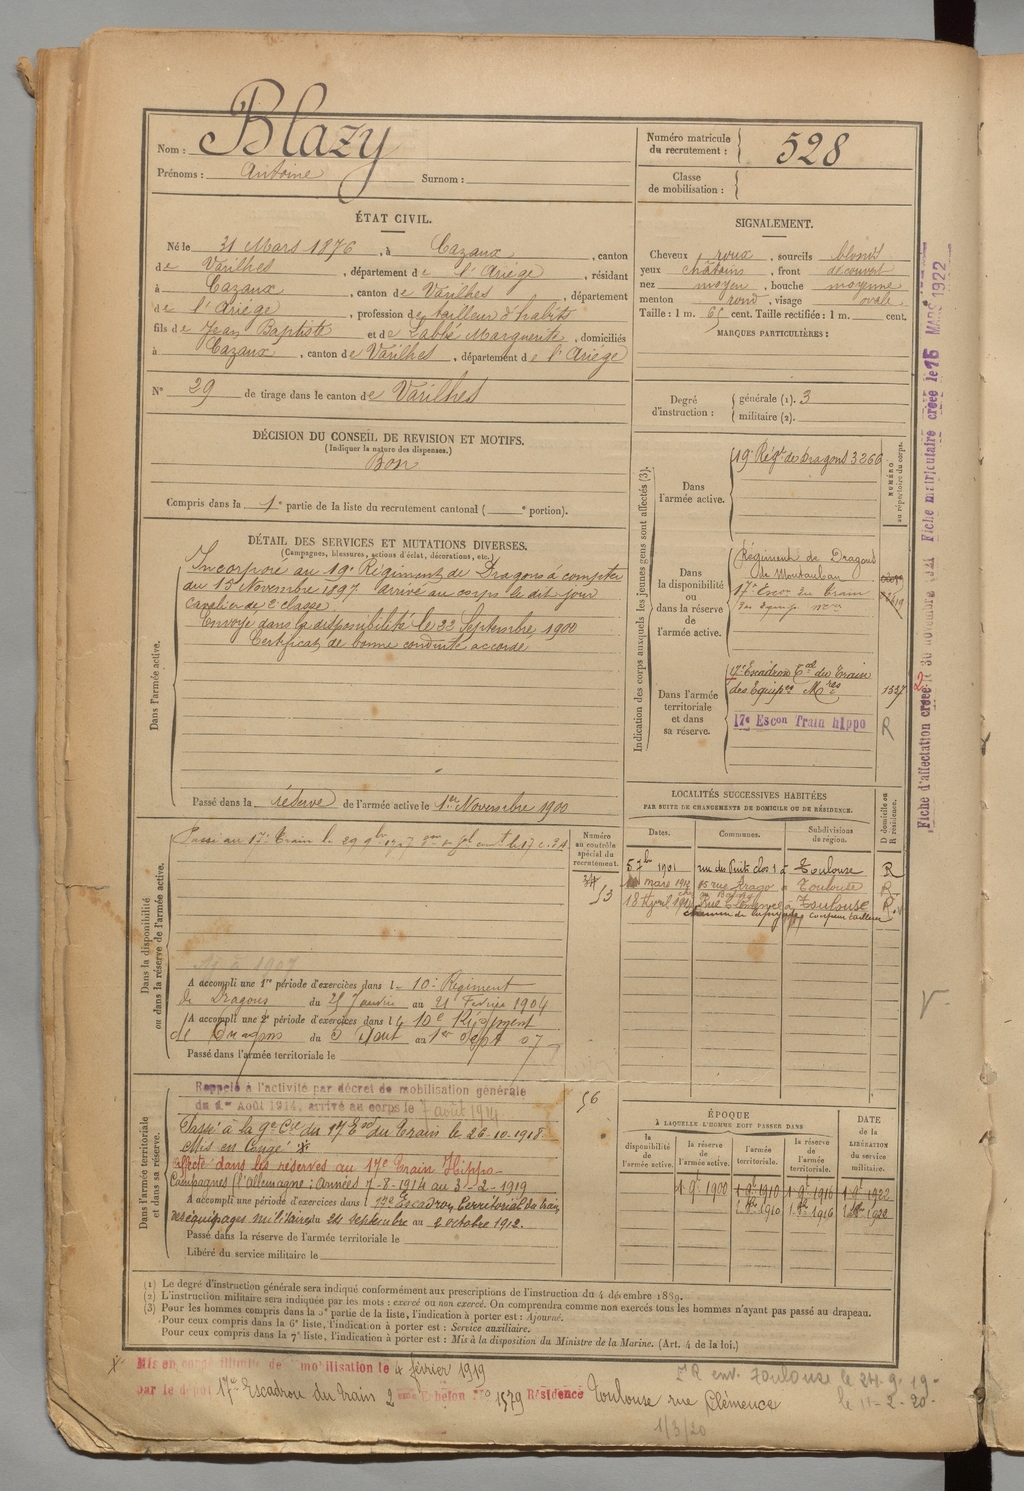 Nom : Blazy
Prénoms : Antoine Surnom :
Numéro matricule du recrutement : 528
Classe de mobilisation :
ÉTAT CIVIL.
Né le 31 Mars 1876, à Cazaux, canton
de Varilhes, département de l'Ariège, résidant
à Cazaux, canton de Varilhes, département
de l'Ariège, profession de tailleur d'habits
fils de Jean Baptiste et de Labbé Marguerite, domiciliés
à Cazaux, canton de Varilhes, département de l'Ariège
N° 29 de tirage dans le canton de Varilhes
SIGNALEMENT.
Cheveux roux, sourcils blonds
yeux châtains, front découvert
nez moyen, bouche moyenne
menton rond, visage ovale
Taille : 1 m. 65 cent. Taille rectifiée : 1 m. cent.
MARQUES PARTICULIÈRES :
Degré d'instruction : générale (1). 3
militaire (2).
DÉCISION DU CONSEIL DE REVISION ET MOTIFS.
(Indiquer la nature des dispenses.)
Bon
Compris dans la 1e partie de la liste du recrutement cantonal ( e portion).
DÉTAIL DES SERVICES ET MUTATIONS DIVERSES.
(Campagnes, blessures, actions d'éclat, décorations, etc.)
Dans l'armée active.
Incorporé au 19e Régiment de Dragons à compter
du 15 Novembre 1897 arrivé au corps le dit jour
cavalier de 2e classe
Envoyé dans la disponibilité le 22 Septembre 1900
Certificat de bonne conduite accordé
Passé dans la réserve de l'armée active le 1er Novembre 1900
Indication des corps auxquels les jeunes gens sont affectés (3).
NUMÉRO au répertoire du corps.
Dans l'armée active.
19e Régt de Dragons 3266
Dans la disponibilité ou dans la réserve de l'armée active.
Régiment de Dragons
de Montauban
17e Escon du Train
des équip. mres
Dans l'armée territoriale et dans sa réserve.
17e Escadron Tal du Train
des Equipes Mres 1337
17e Escon Train hippo R
LOCALITÉS SUCCESSIVES HABITÉES
PAR SUITE DE CHANGEMENTS DE DOMICILE OU DE RÉSIDENCE.
D domicile ou R résidence.
Dates. Communes. Subdivisions de région.
5 7bre 1901 rue des Puits clos 1 à Toulouse R
mars 1912 85 rue Arago à Toulouse R.
18 Avril 1912 Rue Clémence à Toulouse R.
coupeur tailleur
Dans la disponibilité ou dans la réserve de l'armée active.
Numéro au contrôle spécial du recrutement.
34
53
A accompli une 1re période d'exercices dans le 10e Régiment
de Dragons du 25 Janvier au 21 Février 1904
A accompli une 2e période d'exercices dans le 10e Régiment
de Dragons du 5 Aout au 1er Sept 07
Passé dans l'armée territoriale le
Dans l'armée territoriale et dans sa réserve.
Rappelé à l'activité par décret de mobilisation générale
du 1er Août 1914, arrivé au corps le 7 août 1914
56
Passé à la 9e Cie du 17 Eon du Train le 26-10-1918
Mis en Congé
affecté dans les réserves au 17e Train Hippo-
Campagnes (l'Allemagne : années 7-8-1914 au 3-2-1919
A accompli une période d'exercices dans l 17e Escadron territorial du train
des équipages militaires du 24 septembre au 2 octobre 1912.
Passé dans la réserve de l'armée territoriale le
Libéré du service militaire le
ÉPOQUE
À LAQUELLE L'HOMME DOIT PASSER DANS
la disponibilité de l'armée active. la réserve de l'armée active. l'armée territoriale. la réserve de l'armée territoriale.
DATE de la LIBÉRATION du service militaire.
1 9e 1900 1 9e 1910 1 9e 1916 1 9e 1922
1910 1916 1922
(1) Le degré d'instruction générale sera indiqué conformément aux prescriptions de l'instruction du 4 décembre 1889.
(2) L'instruction militaire sera indiquée par les mots : exercé ou non exercé. On comprendra comme non exercés tous les hommes n'ayant pas passé au drapeau.
(3) Pour les hommes compris dans la 5e partie de la liste, l'indication à porter est : Ajourné.
Pour ceux compris dans la 6e liste, l'indication à porter est : Service auxiliaire.
Pour ceux compris dans la 7e liste, l'indication à porter est : Mis à la disposition du Ministre de la Marine. (Art. 4 de la loi.)
Mis en congé illimité de démobilisation le 4 février 1919
par le dépôt 17e Escadron du Train 2eme Echelon No 1579 Résidence Toulouse rue Clémence
env. Toulouse le 24-9-19-
le 11-2-20-
1/3/20
Fiche d'affectation créée le 30 novembre 1921 Fiche matriculaire créée le 15 MARS 1922